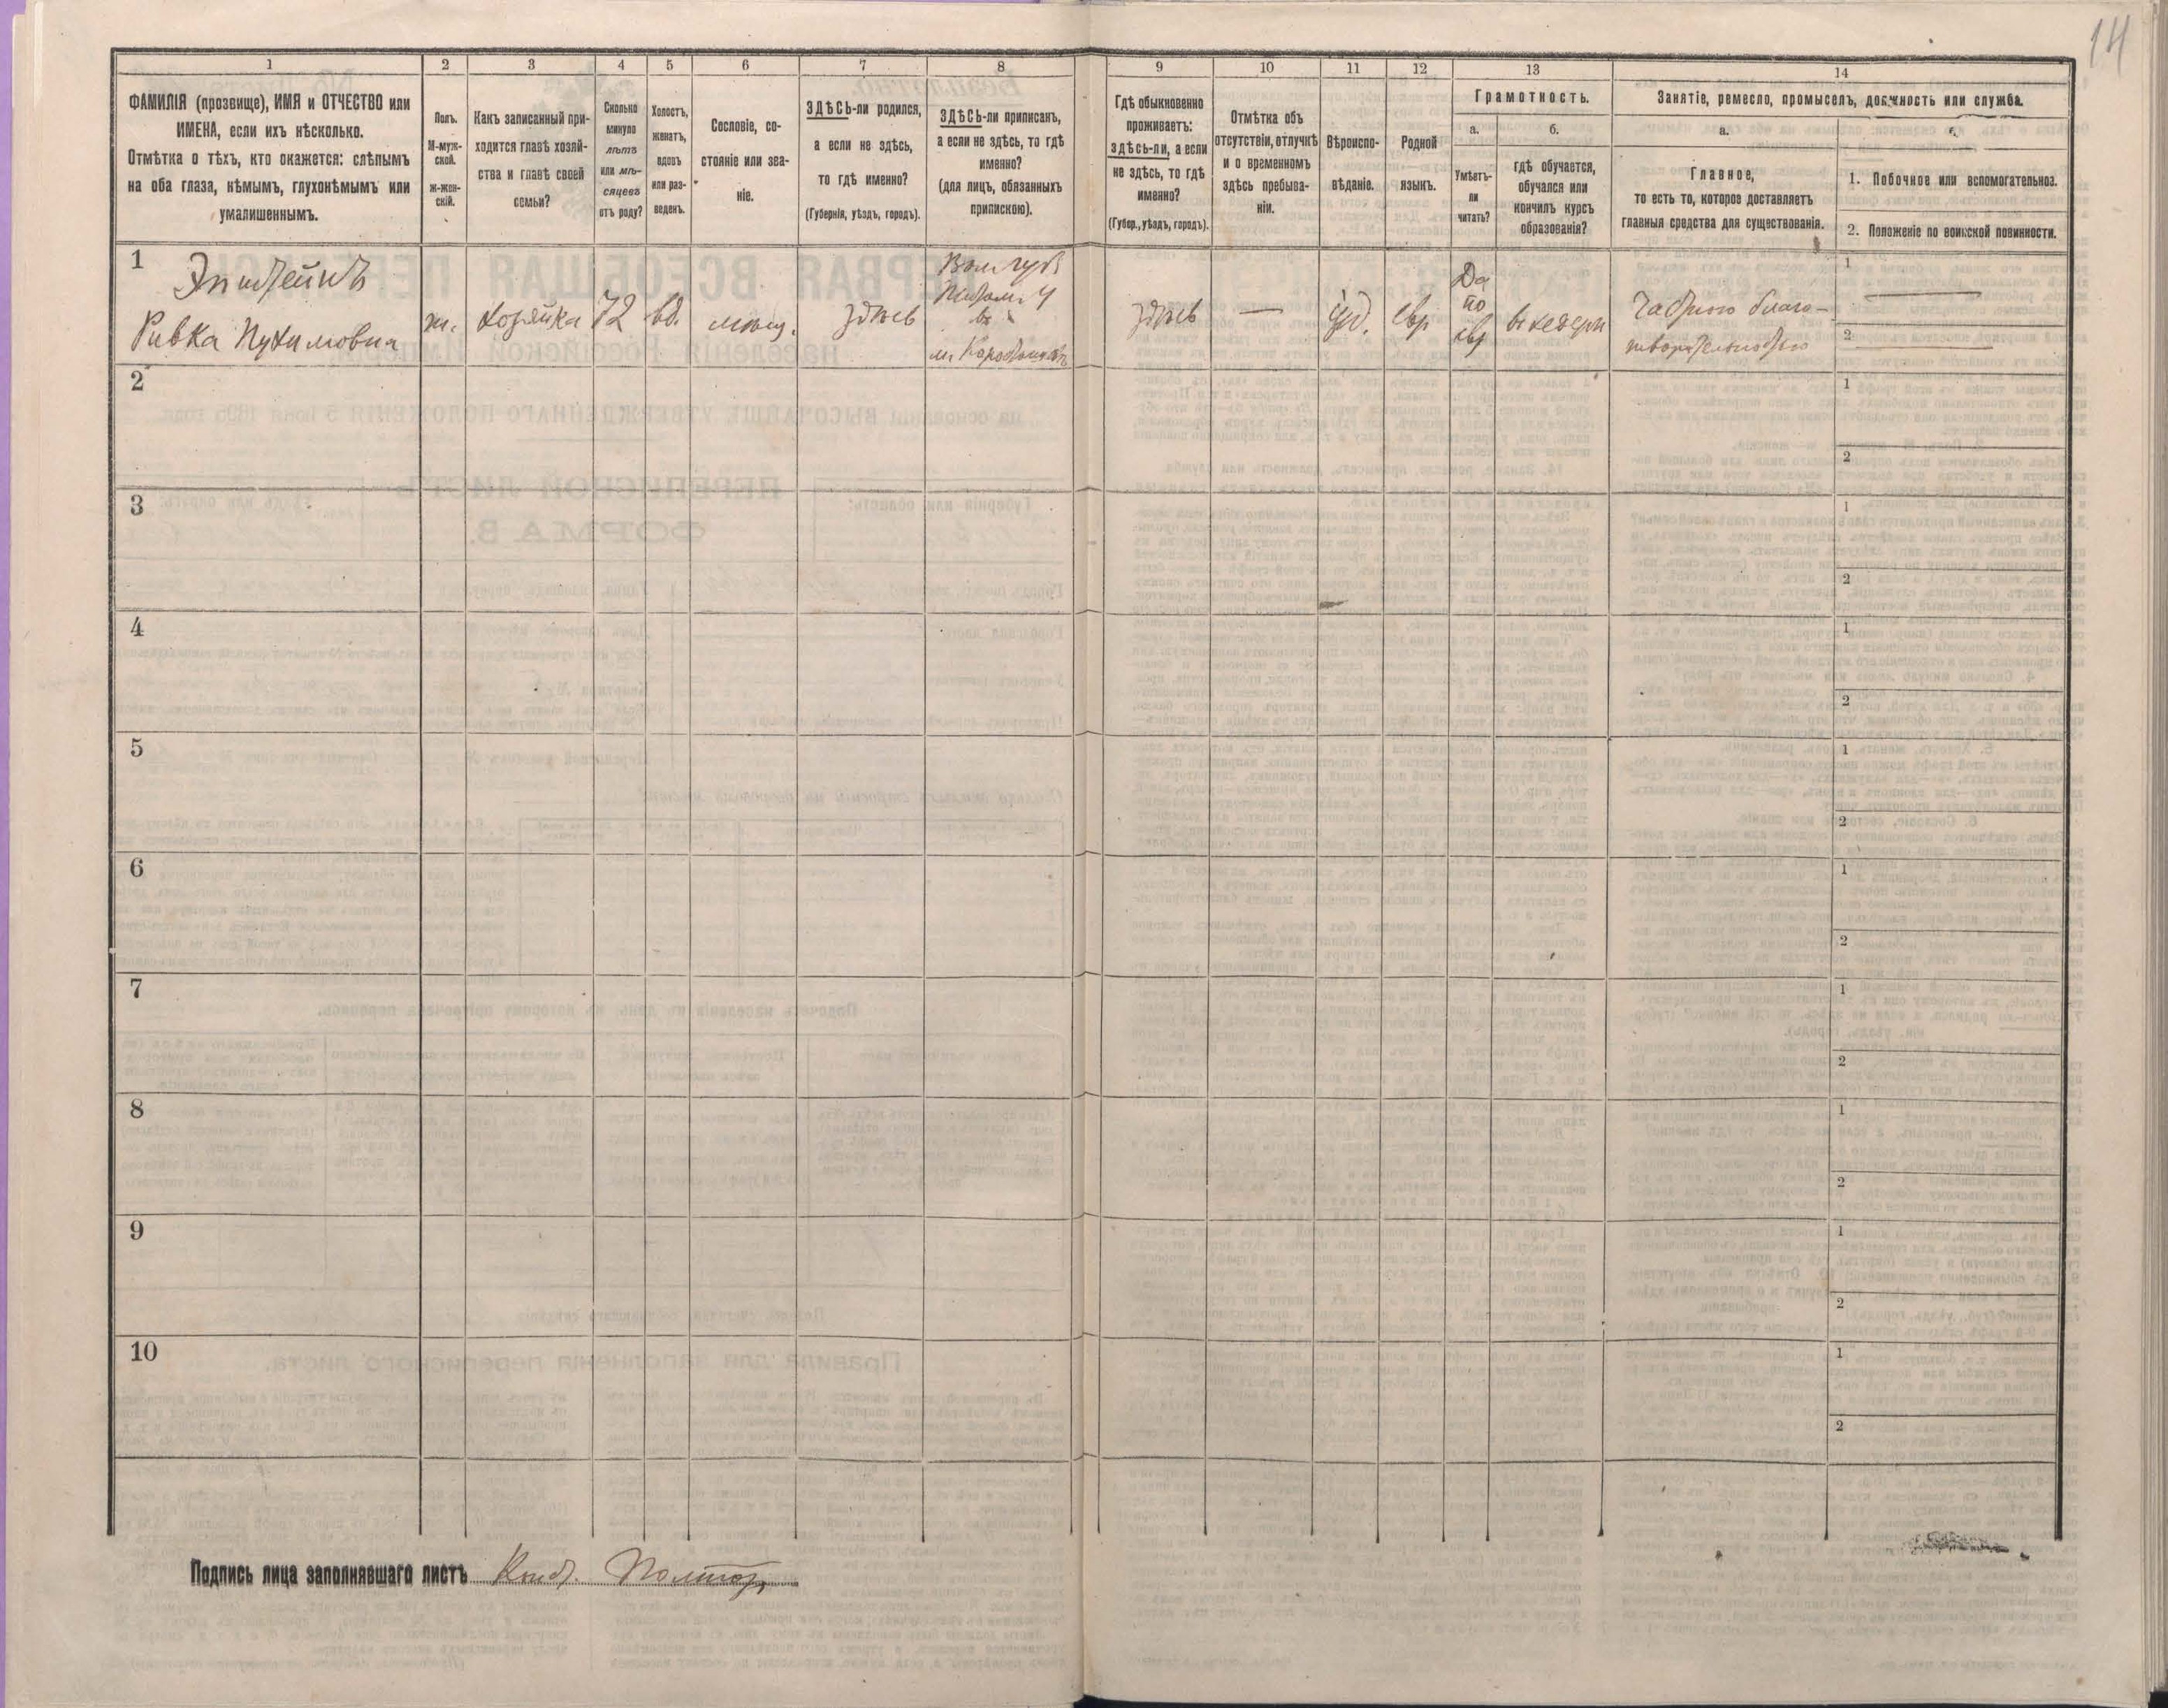 14
1
2
3
4
5
6
7
8
9
10
11
12
13
14
ФАМИЛІЯ (прозвище), ИМЯ и ОТЧЕСТВО или
ИМЕНА, если ихъ нѣсколько.
Отмѣтка о тѣхъ, кто окажется: слѣпымъ
на оба глаза, нѣмымъ, глухонѣмымъ или
умалишеннымъ.
Полъ.
М-муж-
ской.
ж-жен-
скій.
Какъ записанный при-
ходится главѣ хозяй-
ства и главѣ своей
семьи?
Сколько
минуло
лѣтъ
или мѣ-
сяцевъ
отъ роду?
Холостъ,
женатъ,
вдовъ
или раз-
веденъ.
Сословіе, со-
стояніе или зва-
ніе.
ЗДѢСЬ-ли родился,
а если не здѣсь,
то гдѣ именно?
(Губернія, уѣздъ, городъ).
ЗДѢСЬ-ли приписанъ,
а если не здѣсь, то гдѣ
именно?
(для лицъ, обязанныхъ
припискою).
Гдѣ обыкновенно
проживаетъ:
здѣсь-ли, а если
не здѣсь, то гдѣ
именно?
(Губер., уѣздъ, городъ).
Отмѣтка объ
отсутствіи, отлучкѣ
и о временномъ
здѣсь пребыва-
ніи.
Вѣроиспо-
вѣданіе.
Родной
языкъ.
Грамотность.
а.
Умѣетъ-
ли
читать?
б.
гдѣ обучается,
обучался или
кончилъ курсъ
образованія?
Занятіе, ремесло, промыселъ, должность или служба.
а.
Главное,
то есть то, которое доставляетъ
главныя средства для существованія.
1. Побочное или вспомогательное.
2. Положеніе по воинской повинности.
1
Эпштейнъ
Ривка
ж.
хозяйка
72
вд.
мѣщ.
здѣсь
здѣсь
—
іуд.
евр
Да
по
евр
1
2
2
1
2
3
1
2
4
1
2
5
1
2
6
1
2
7
1
2
8
1
2
9
1
2
10
1
2
Подпись лица заполнявшаго листъ